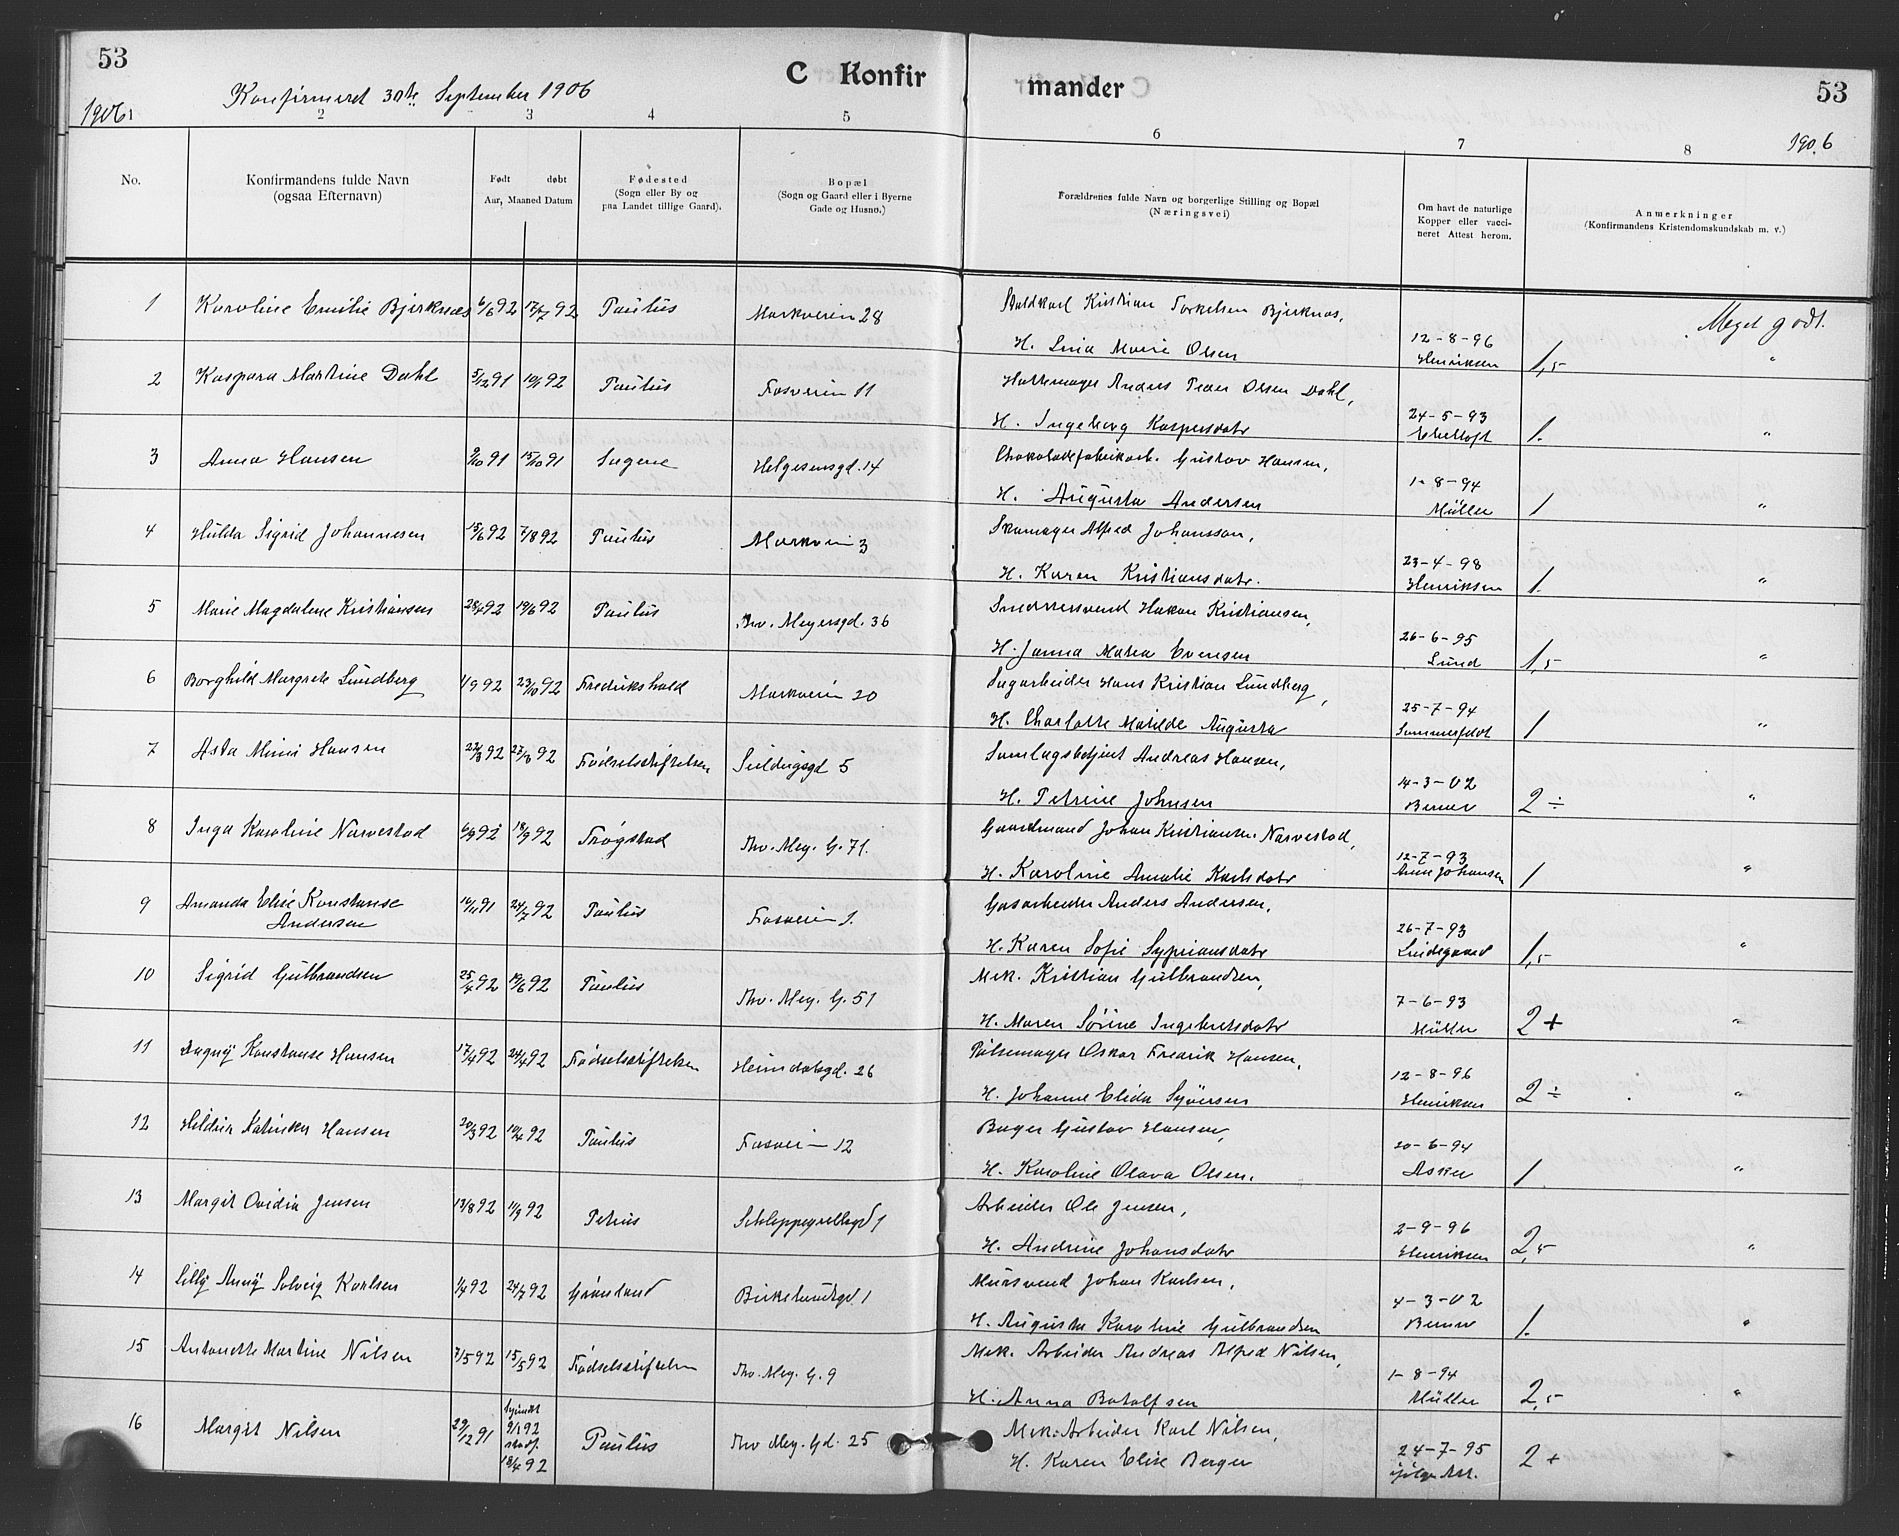 53
C Konfirmander
53
1906
Konfirmeret 30te September 1906
1906
1 2 3 4 5 6 7 8
No.
Konfirmandens fulde Navn
(ogsaa Efternavn)
Født døbt
Aar, Maaned Datum
Fødested
(Sogn eller By og
paa Landet tillige Gaard).
Bopæl
(Sogn og Gaard eller i Byerne
Gade og Husno.)
Forældrenes fulde Navn og borgerlige Stilling og Bopæl
(Næringsvei)
Om havt de naturlige
Kopper eller vacci-
neret Attest herom.
Anmerkninger
(Konfirmandens Kristendomskundskab m. v.)
1 Karoline Emilie Bjerknæs 6/6 92 17/7 92 Paulus Markveien 28 Staldkarl Kristian Torkelsen Bjerknæs, Meget godt.
H. Lina Marie Olsen 12-8-96 Henriksen 1,5 "
2 Kaspara Martine Dahl 5/12 91 10/1 92 Paulus Fosveien 11 Hattemager Anders Peder Olsen Dahl,
H. Ingeborg Kaspersdatr 24-5-93 1. "
3 Anna Hansen 9/10 91 15/10 91 Helgesensgd. 14 Chokoladefabrikarb. Gustav Hansen,
H. Augusta Andersen 1-8-94 Müller 1 "
4 Hulda Sigrid Johannesen 15/6 92 7/8 92 Paulus Markvein 3 Skomager Alfred Johansson,
H. Karen Kristiansdatr. 23-4-98 Henriksen 1. "
5 Marie Magdalene Kristiansen 28/4 92 19/6 92 Paulus Thv. Meyersgd. 36 Snedkersvend Hakon Kristiansen,
H. Janna Maria Evensen 26-6-95 Lund 1,5 "
6 Borghild Margrete Lundberg 1/9 92 23/10 92 Fredrikshald Markveien 20 Sagarbeider Hans Kristian Lundberg,
H. Charlotte Matilde Augusta 25-7-94 Sommerfeldt 1 "
7 Asta Mimi Hansen 22/8 92 27/8 92 Fødselsstiftelsen Seildugsgd 5 Samlagsbetjent Andreas Hansen,
H. Petrine Johnsen 14-3-02 Berner 2 ÷ "
8 Inga Karoline Narvestad 6/9 92 18/9 92 Trøgstad Thv. Mey. G. 71. Gaardmand Johan Kristiansen Narvestad,
H. Karoline Amalie Karlsdatr 12-7-93 Arne Johansen 1 "
9 Amanda Elise Konstanse
Andersen 14/11 91 24/7 92 Paulus Fosveien 1. Gasarbeider Anders Andersen,
H. Karen Sofie Syprians­datr 26-7-93 Lindegaard 1,5 "
10 Sigrid Gulbrandsen 25/4 92 19/6 92 Paulus Thv. Mey. G. 51 Mek. Kristian Gulbrandsen,
H. Maren Sørine Ingebretsdatr 7-6-93 Müller 2 + "
11 Dagny Konstanse Hansen 17/4 92 24/4 92 Fødselsstiftelsen Heimdalsgd. 26 Pølsemager Oskar Fredrik Hansen,
H. Johanne Elida Syversen 12-8-96 Henriksen 2 ÷ "
12 Hildur Katinka Hansen 20/3 92 10/4 92 Paulus Fosvein 12 Bager Gustav Hansen,
H. Karoline Olava Olsen. 20-6-94 Asker 1. "
13 Margit Ovidia Jensen 13/8 92 11/9 92 Petrus Schleppegrellsgd 1 Arbeider Ole Jensen,
H. Andrine Johansdatr 2-9-96 Henriksen 2,5 "
14 Lilly Anny Solveig Karlsen 1/4 92 24/7 92 Grønland Birkelundsgd 1 Mursvend Johan Karlsen,
H. Augusta Karoline Gulbrandsen 4-3-02 Berner 1. "
15 Antonette Martine Nilsen 7/5 92 15/5 92 Fødselsstiftelsen Thv. Mey. G. 9 Mek. Arbeider Andreas Alfred Nilsen,
H. Anna Botolfsen 1-8-94 Müller 2,5 "
16 Margit Nilsen 29/12 91 hjemdt 9/1 92 stadf. 18/4 92 Paulus Thv Mey. Gd. 25 Mek. Arbeider Karl Nilsen,
H. Karen Elise Berger 24-7-95 ifølge Att. 2 +